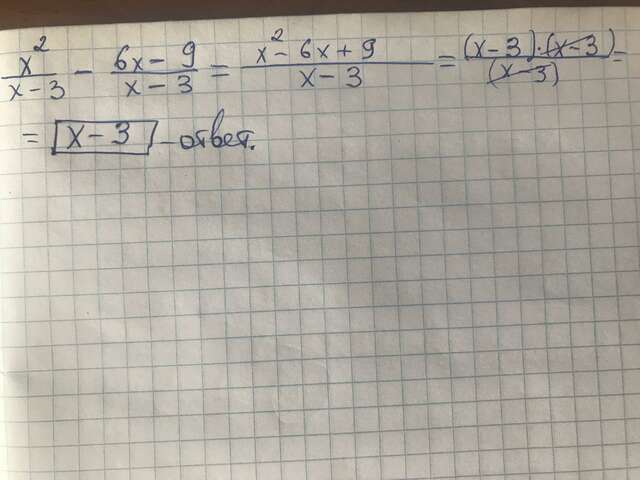 x²/(x-3) - (6x-9)/(x-3) = (x²-6x+9)/(x-3) = ((x-3)·(x-3))/(x-3) =
= x-3 - ответ.